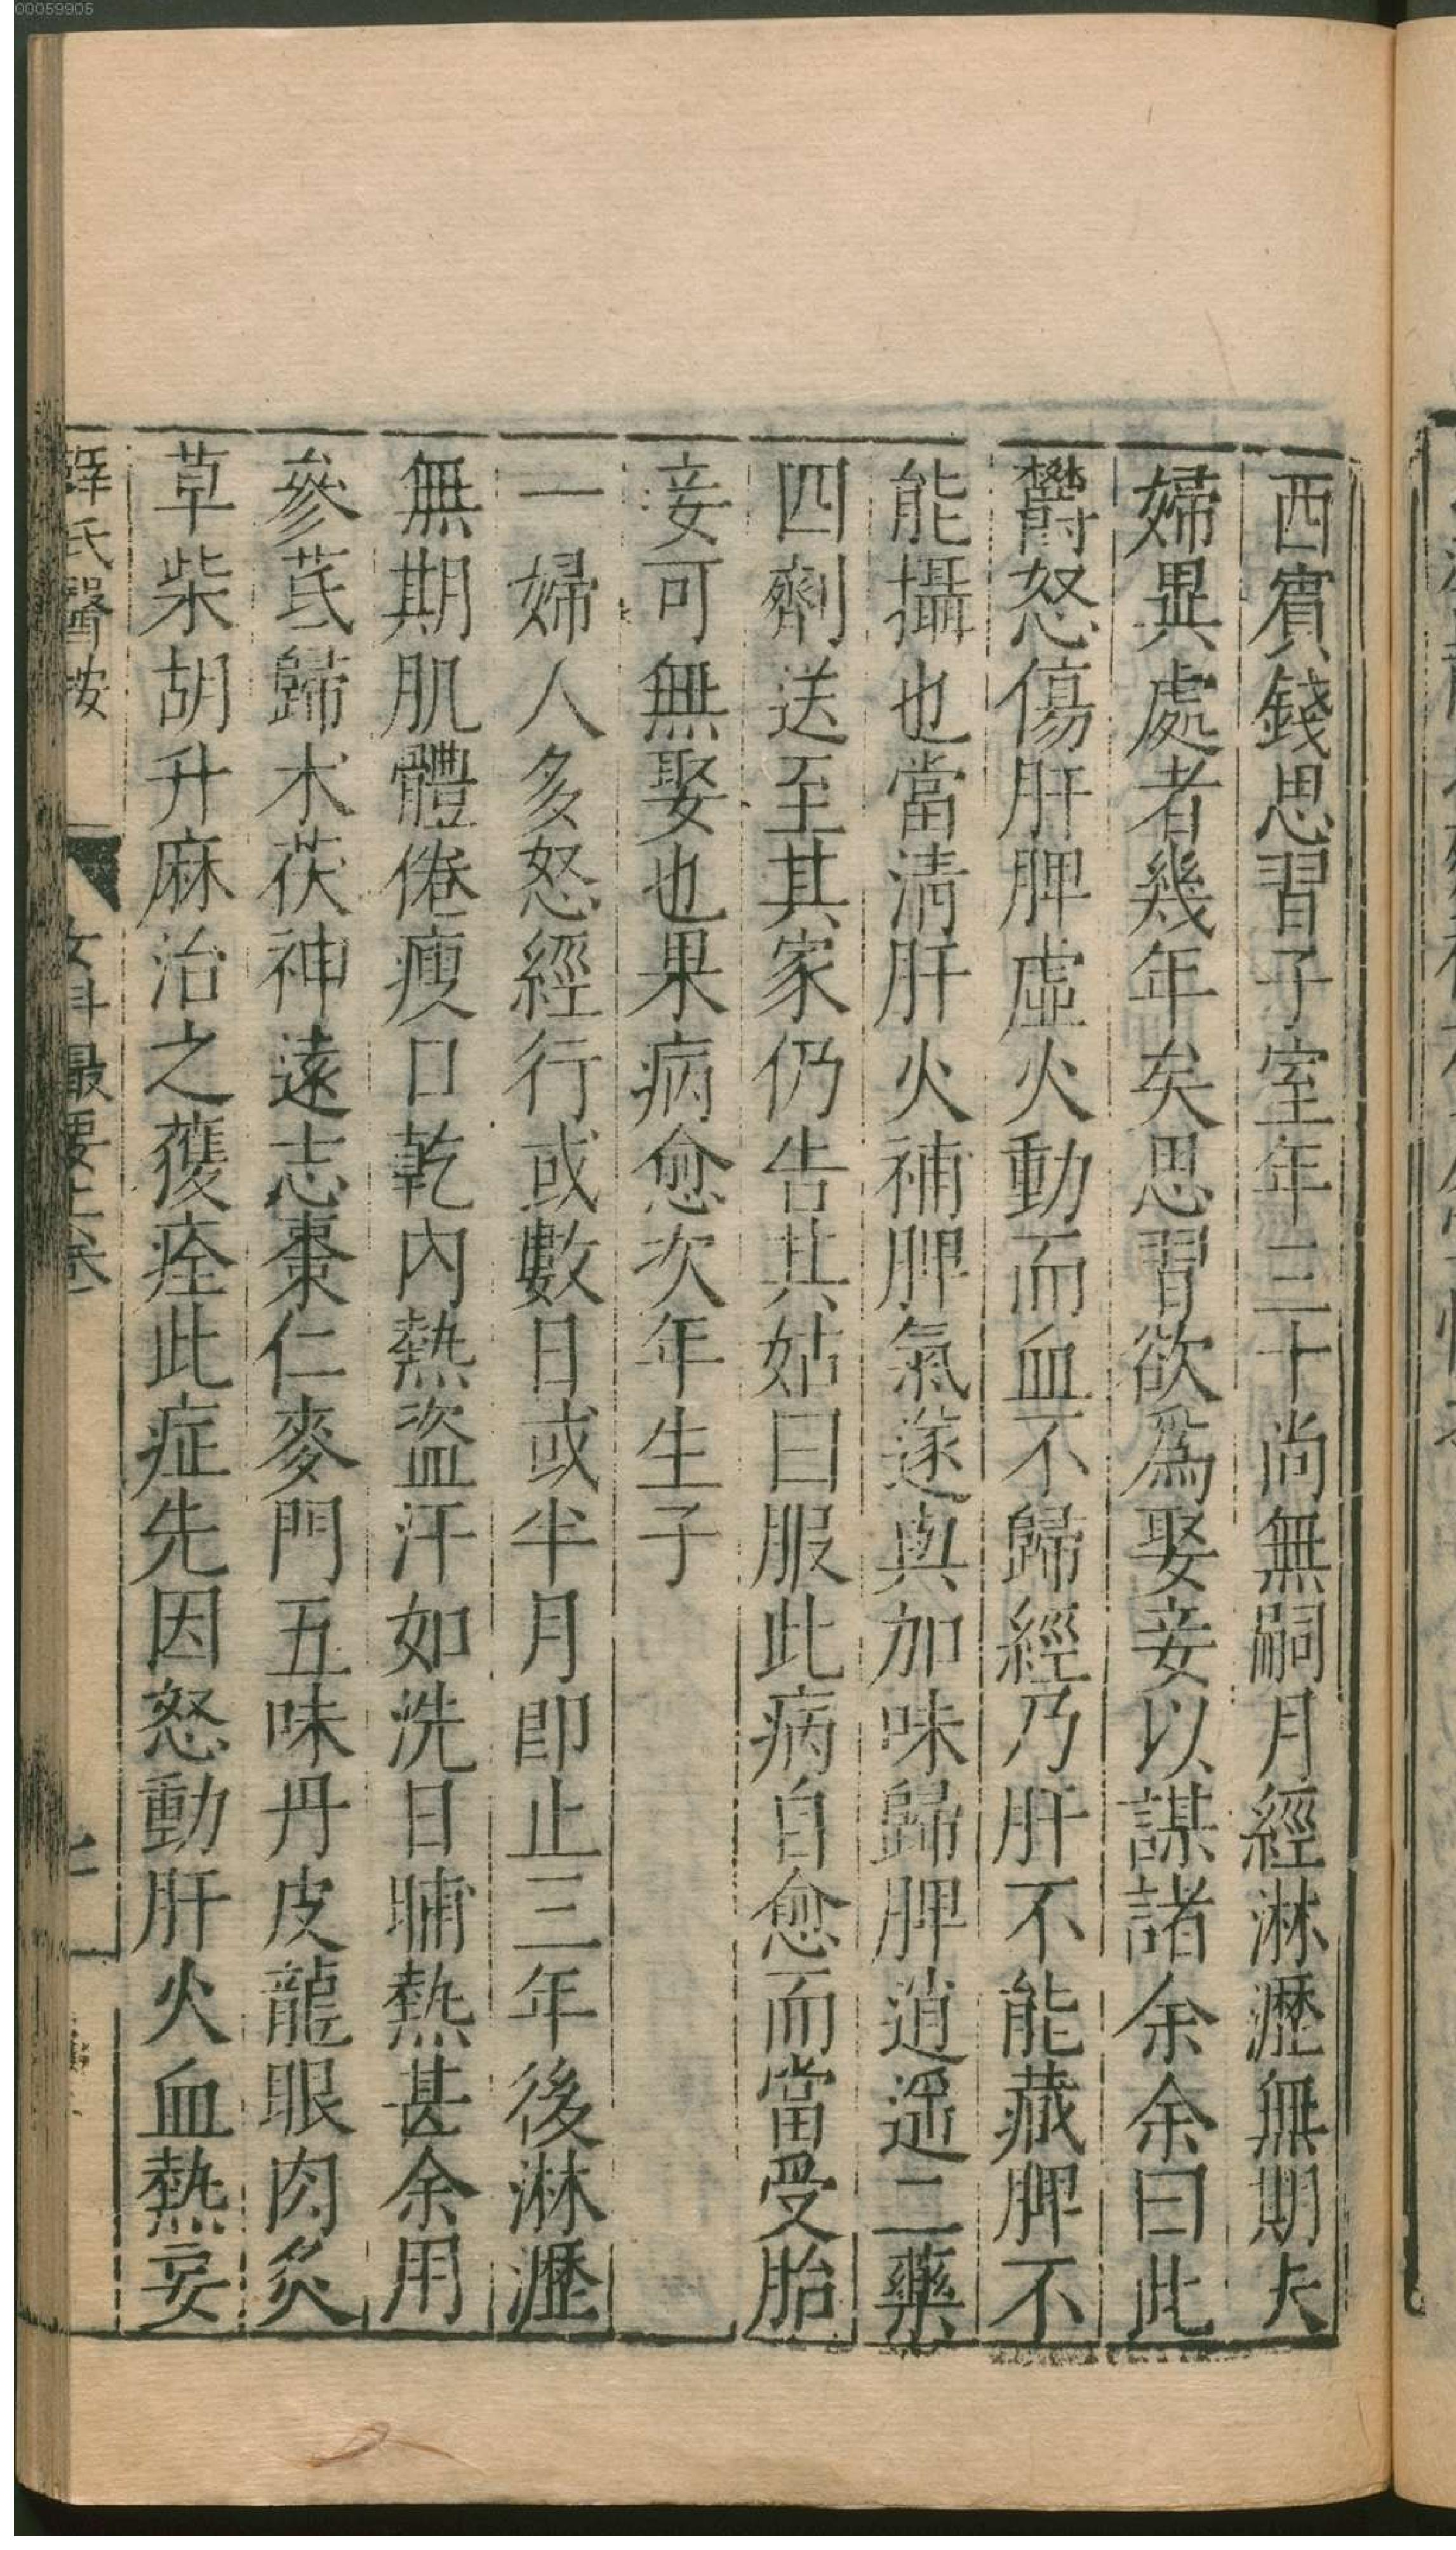 00059905
西賔錢思習子室年三十尚無嗣月經淋瀝無期夫
婦異處者幾年矣思習欲爲娶妾以謀諸余余曰此
欝怒傷肝脾虛火動而血不歸經乃肝不能藏脾不
能攝也當清肝火補脾氣遂與加味歸脾逍遥二藥
四劑送至其家仍告其姑曰服此病自愈而當受胎
妾可無娶也果病愈次年生子
一婦人多怒經行或數日或半月即止三年後淋瀝
無期肌體倦瘦口乾內熱盜汗如洗日晡熱甚余用
參芪歸朮茯神遠志棗仁麥門五味丹皮龍眼肉炙
草柴胡升麻治之獲痊此症先因怒動肝火血熱妄
薛氏醫按 女科撮要上卷